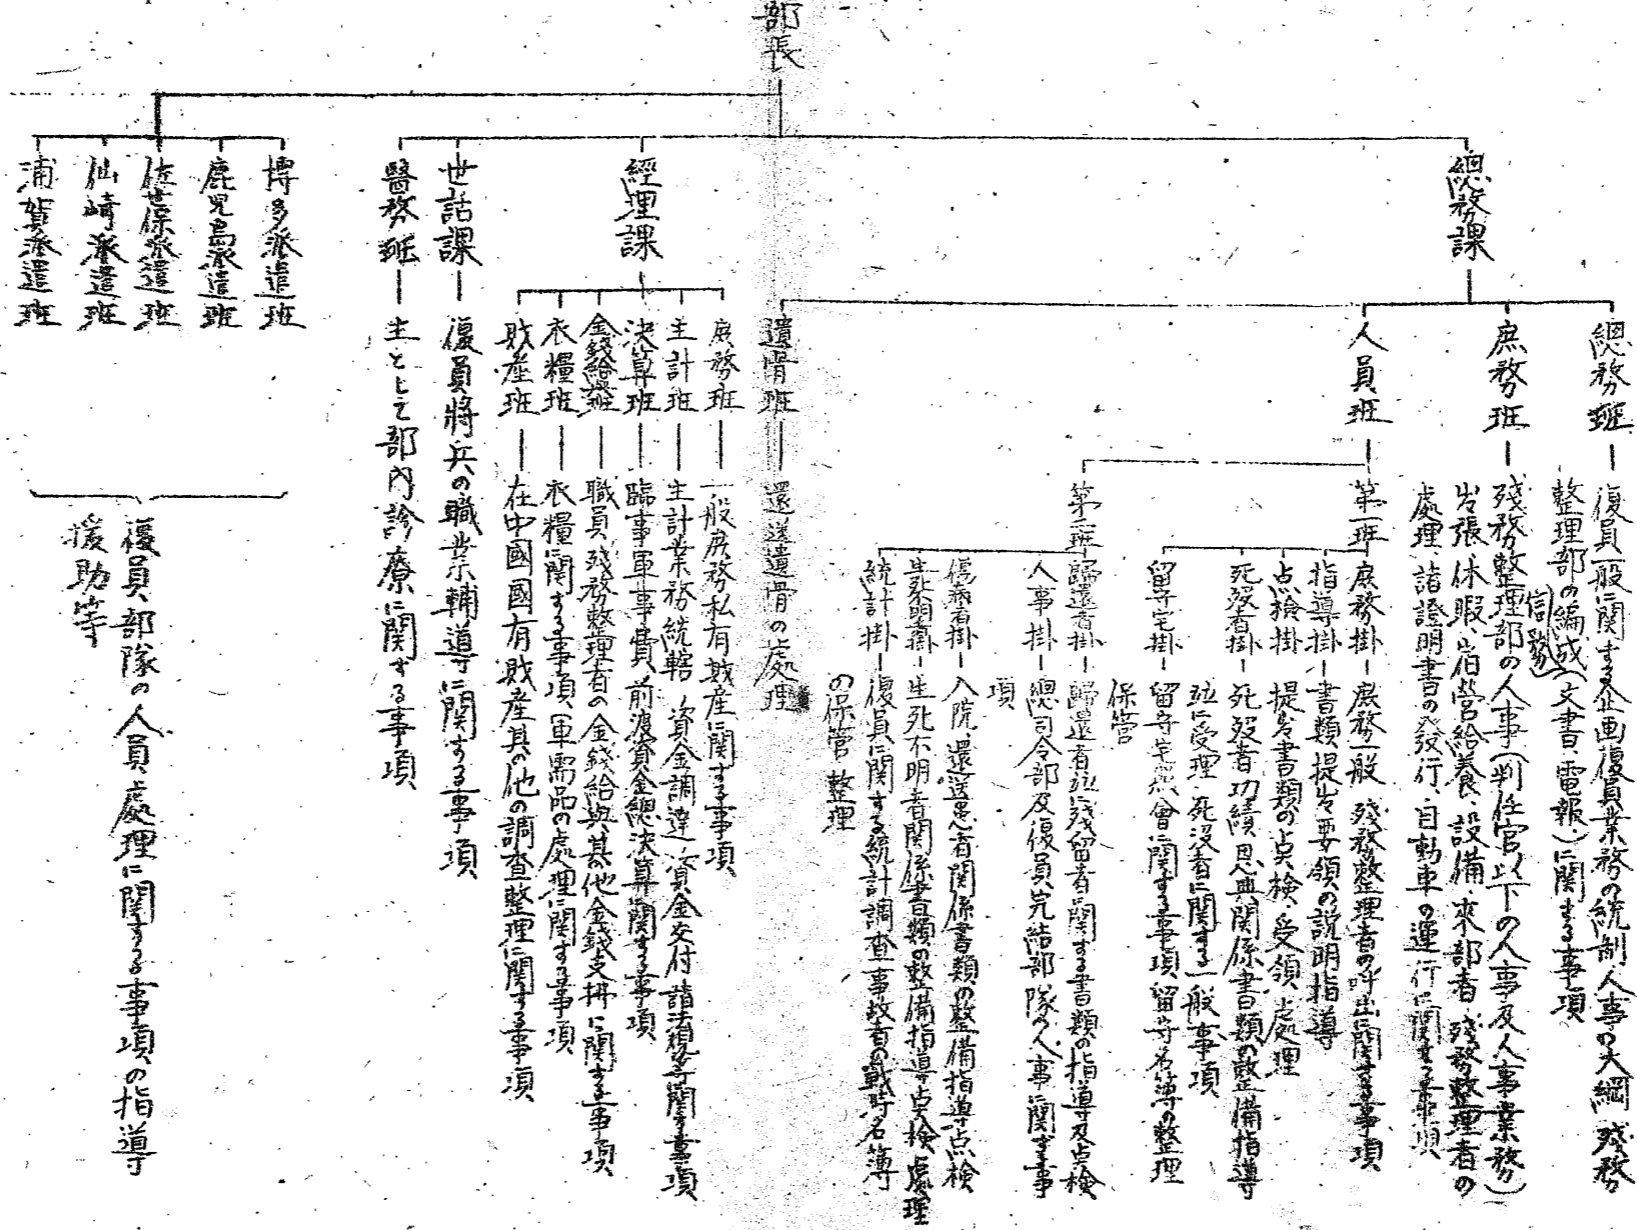 部長
總務課
總務班
復員一般に関する企画復員業務の統制、人事の大綱 残務
整理部の編成(文書、電報、)に関する事項
信務
庶務班
残務整理部の人事(判任官以下の人事及人事業務)
出張、休暇、宿営給養、設備來部者、残務整理者の
處理、諸證明書の発行、自動車の運行に関する事項
人員班
第一班
庶務掛
庶務一般 残務整理者の呼出に関する事項
指導掛
書類提出要領の説明指導
点檢掛
提出書類の点検、受領、処理
死歿者掛
死歿者功績恩典関係書類の整備指導
竝に受理 死没者に関する一般事項
留守宅掛
留守宅照會に関する事項 留守名簿の整理
保管
第二班
歸還者掛
歸還者竝に残留者に関する書類の指導及点検
人事掛
總司令部及復員完結部隊の人事に関する事
項
傷病者掛
入院、還送患者関係書類の整備指導点検
生死不明者掛
生死不明者関係書類の整備指導点検 處理
統計掛
復員に関する統計調査事故者の戰時名簿
の保管 整理
遺骨班
還送遺骨の處理
經理課
庶務班
一般庶務私有財産に関する事項
主計班
主計業務統轄 資金調達、資金交付 諸法規等に関する事項
決算班
臨事軍事費、前渡資金總決算に関する事項
金錢給與班
職員、残務整理者の金錢給與其他金錢支拂に関する事項
衣糧班
衣糧に関する事項 軍需品の處理に関する事項
財産班
在中國國有財産其の他の調査整理に関する事項
世話課
復員將兵の職業輔導に関する事項
醫務班
主として部内診療に関する事項
博多派遣班
鹿児島派遣班
佐世保派遣班
仙崎派遣班
浦賀派遣班
復員部隊の人員處理に関する事項の指導
援助等